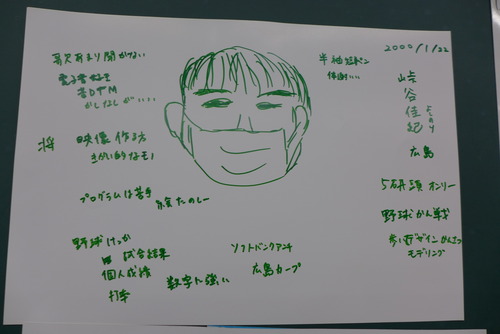 歌 あまり 聞かない
電子音好き
昔DTM
かじる しが、、、、
将 映像作る方
きかい的なモノ
プログラムは苦手
食たのしー
野球けっか
試合結果
個人成績
打率
数字に強い
半袖短パン
体操
2000/1/22
峠谷佳紀
よしのり
広島
5研 頭 オンリー
野球かん戦
歩い デザイン かんさつ
モデリング
ソフトバンクアンチ
広島カープ